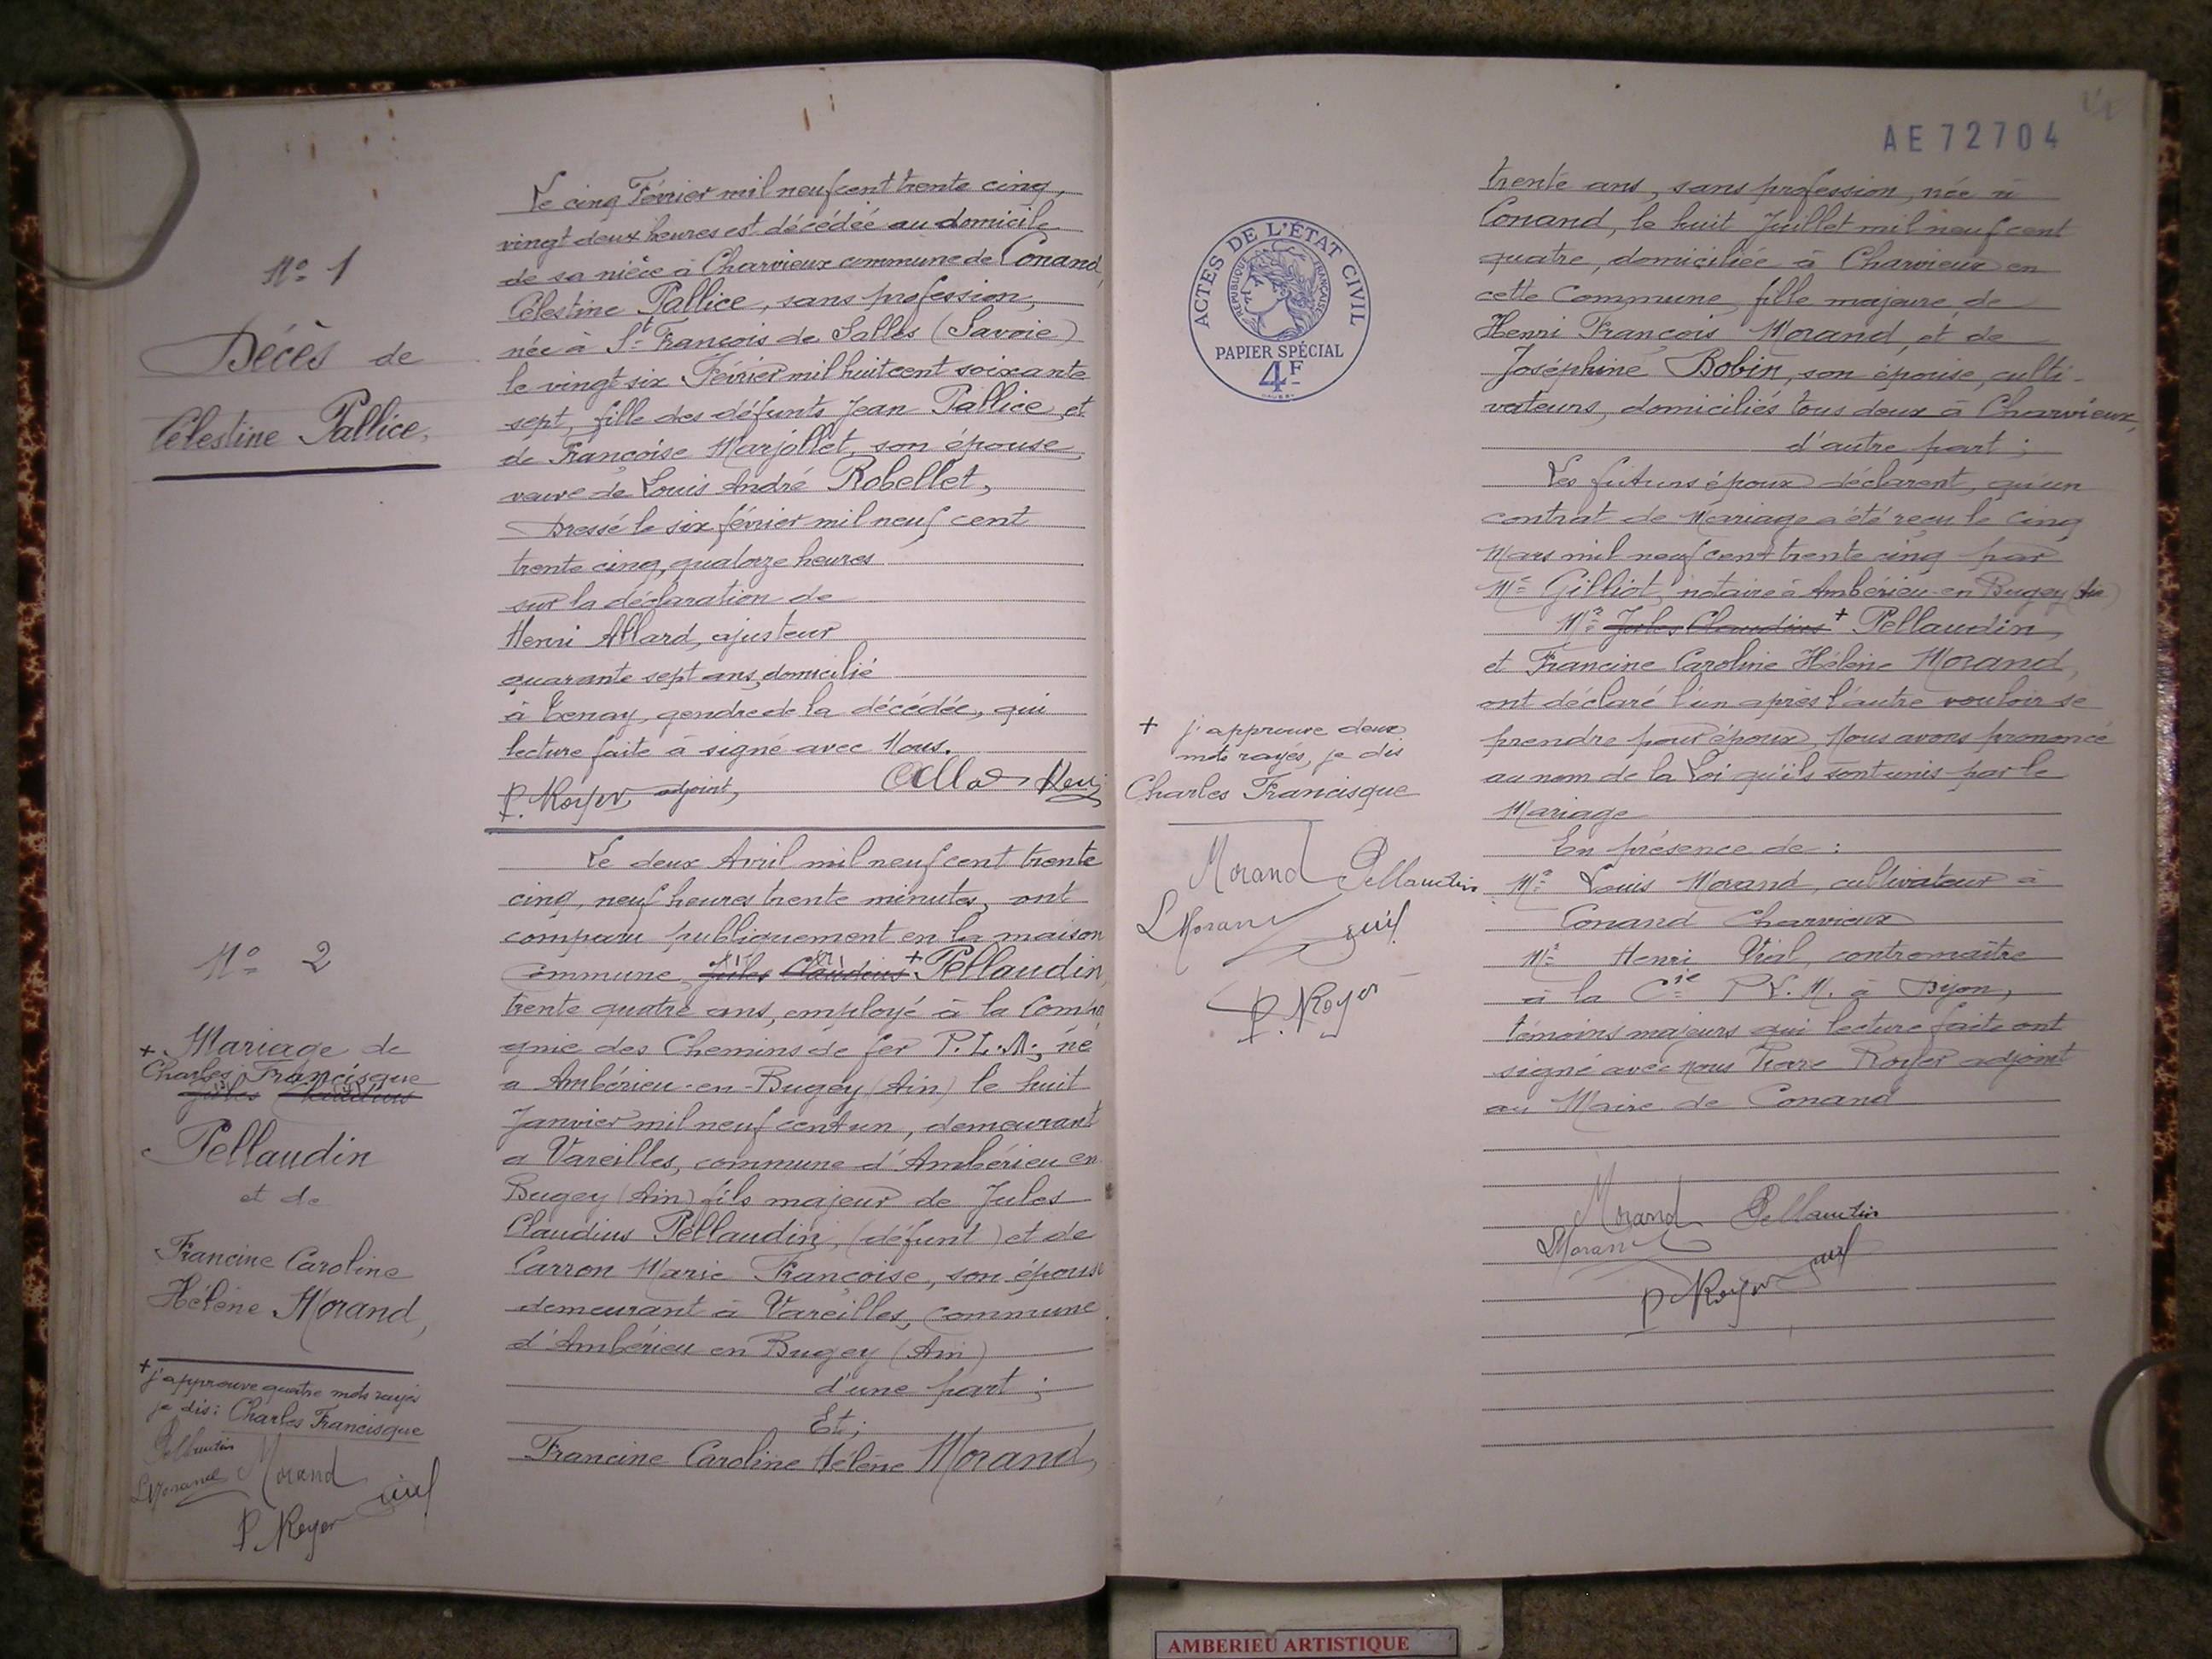 Nº 1
Décès de
Célestine Pallice,
Le cinq Février mil neuf cent trente cinq,
vingt deux heures est décédée au domicile
de sa nièce à Charvieux commune de Conand,
Célestine Pallice, sans profession,
née à St François de Salles (Savoie)
le vingt six Février mil huit cent soixante
sept, fille des défunts Jean Pallice et
de Françoise Marjollet, son épouse
veuve de Louis André Robellet,
Dressé le six février mil neuf cent
trente cinq, quatorze heures
sur la déclaration de
Henri Allard, ajusteur
quarante sept ans, domicilié
à Tenay, gendre de la décédée, qui
lecture faite à signé avec Nous.
P. Royer, adjoint,
Nº 2
+ Mariage de
Charles Francisque
Jules Claudius
Pellaudin
et de
Francine Caroline
Hélène Morand,
+ j'approuve quatre mots rayés
je dis: Charles Francisque
Pellaudin
LMorand Morand
P. Royer
Le deux Avril mil neuf cent trente
cinq, neuf heures trente minutes, ont
comparu publiquement en la maison
commune, Jules Claudius + Pellaudin,
trente quatre ans, employé à la Compa
gnie des Chemins de fer P.L.M., né
a Ambérieu-en-Bugey (Ain) le huit
Janvier mil neuf cent un, demeurant
a Vareilles, commune d'Ambérieu en
Bugey (Ain) fils majeur de Jules
Claudius Pellaudin, (défunt) et de
Carron Marie Françoise, son épouse
demeurant à Vareilles, commune
d'Ambérieu en Bugey (Ain)
d'une part ;
Et ;
Francine Caroline Hélène Morand,
AE72704
ACTES DE L'ÉTAT CIVIL
RÉPUBLIQUE FRANÇAISE
PAPIER SPÉCIAL
4F
trente ans, sans profession, née à
Conand, le huit Juillet mil neuf cent
quatre, domiciliée à Charvieux en
cette Commune, fille majeure de
Henri François Morand, et de
Joséphine Bobin, son épouse, culti-
vateurs, domiciliés tous deux à Charvieux,
d'autre part ;
Les futurs époux déclarent, qu'un
contrat de Mariage a été reçu le cinq
Mars mil neuf cent trente cinq par
Me Gilliot, notaire à Ambérieu-en-Bugey (Ain)
Mr Jules Claudius + Pellaudin,
et Francine Caroline Hélène Morand,
ont déclaré l'un après l'autre vouloir se
prendre pour époux, Nous avons prononcé
au nom de la Loi qu'ils sont unis par le
Mariage
En présence de :
Mr Louis Morand, cultivateur à
Conand Charvieux
Mr Henri Vial, contremaître
à la Cie P.L.M. à Dijon,
témoins majeurs qui lecture faite ont
signé avec nous Pierre Royer adjoint
au Maire de Conand
+ j'approuve deux
mots rayés, je dis
Charles Francisque
Morand Pellaudin
LMorand
P. Royer
Morand Pellaudin
LMorand
P. Royer
AMBERIEU ARTISTIQUE